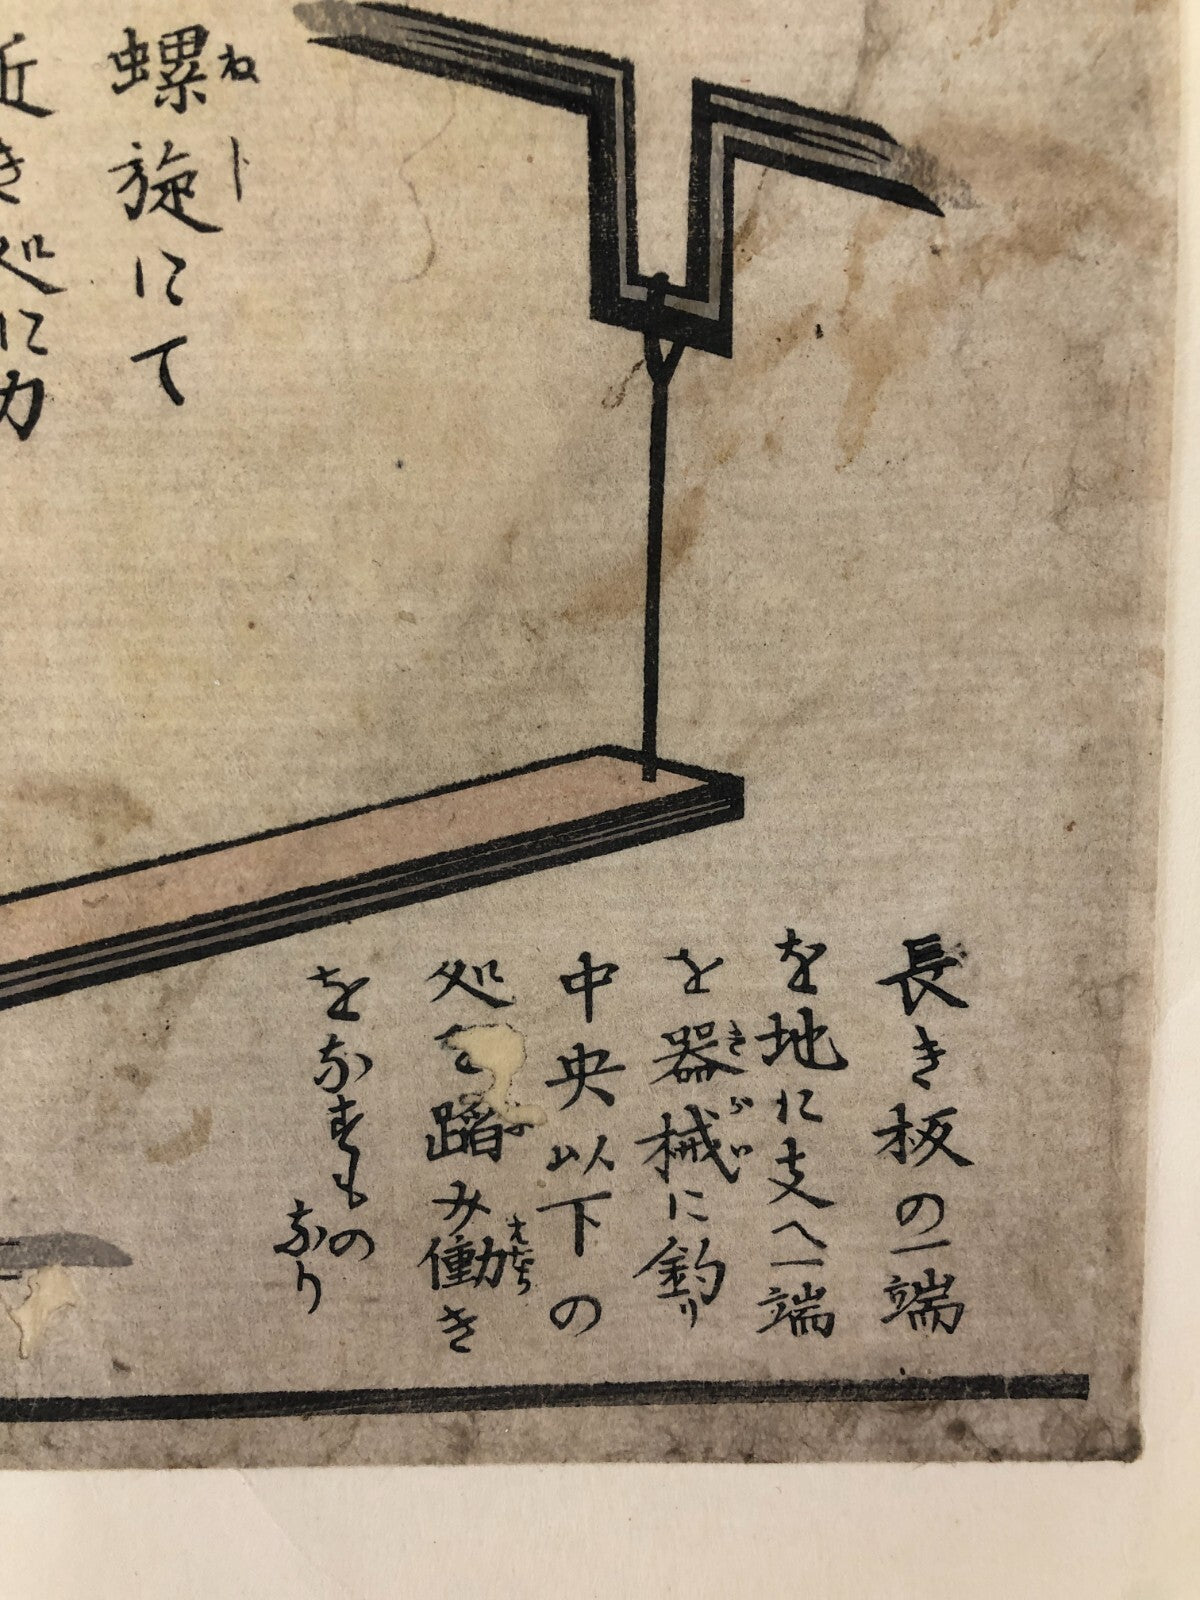 長き板の一端
を地に支へ一端
を器械に釣り
中央以下の
処を蹈み働き
をなすもの
なり
螺旋にて
ねぢ
近き処に力